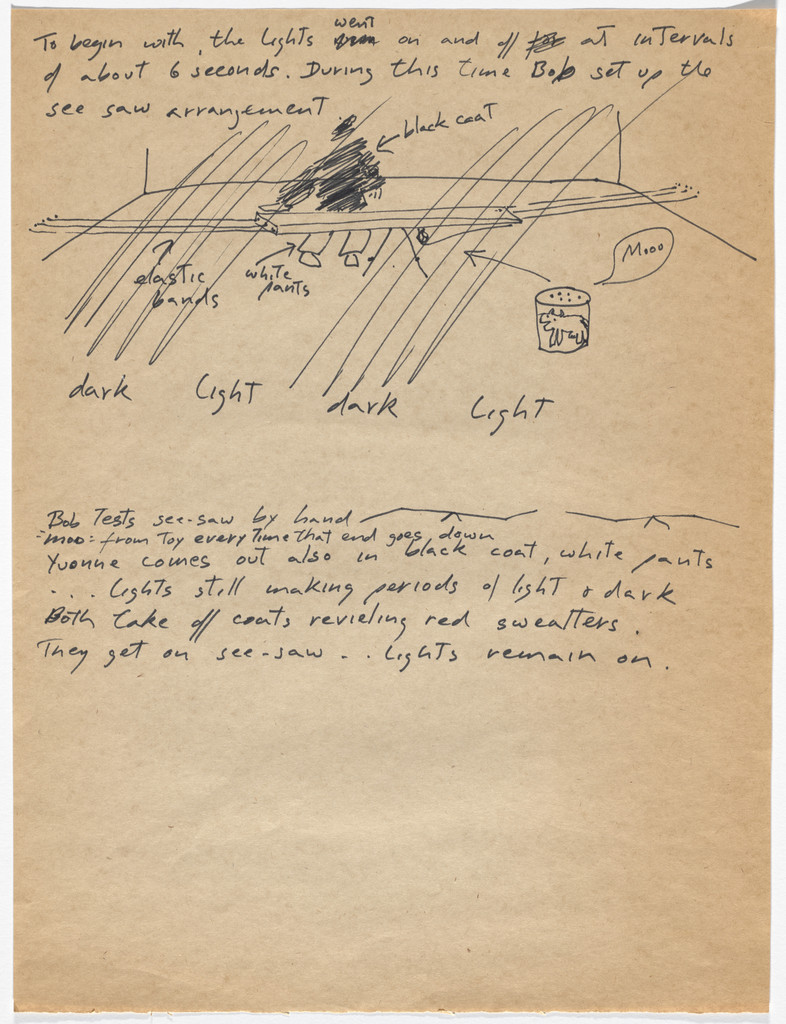 To begin with, the lights went on and off at intervals
of about 6 seconds. During this time Bob set up the
see saw arrangement
black coat
Mooo
elastic
bands
white
pants
dark light dark light
Bob Tests see-saw by hand
"moo" from Toy every time that end goes down
Yvonne comes out also in black coat, white pants
... lights still making periods of light & dark
Both take off coats revieling red sweatters.
They get on see-saw... lights remain on.